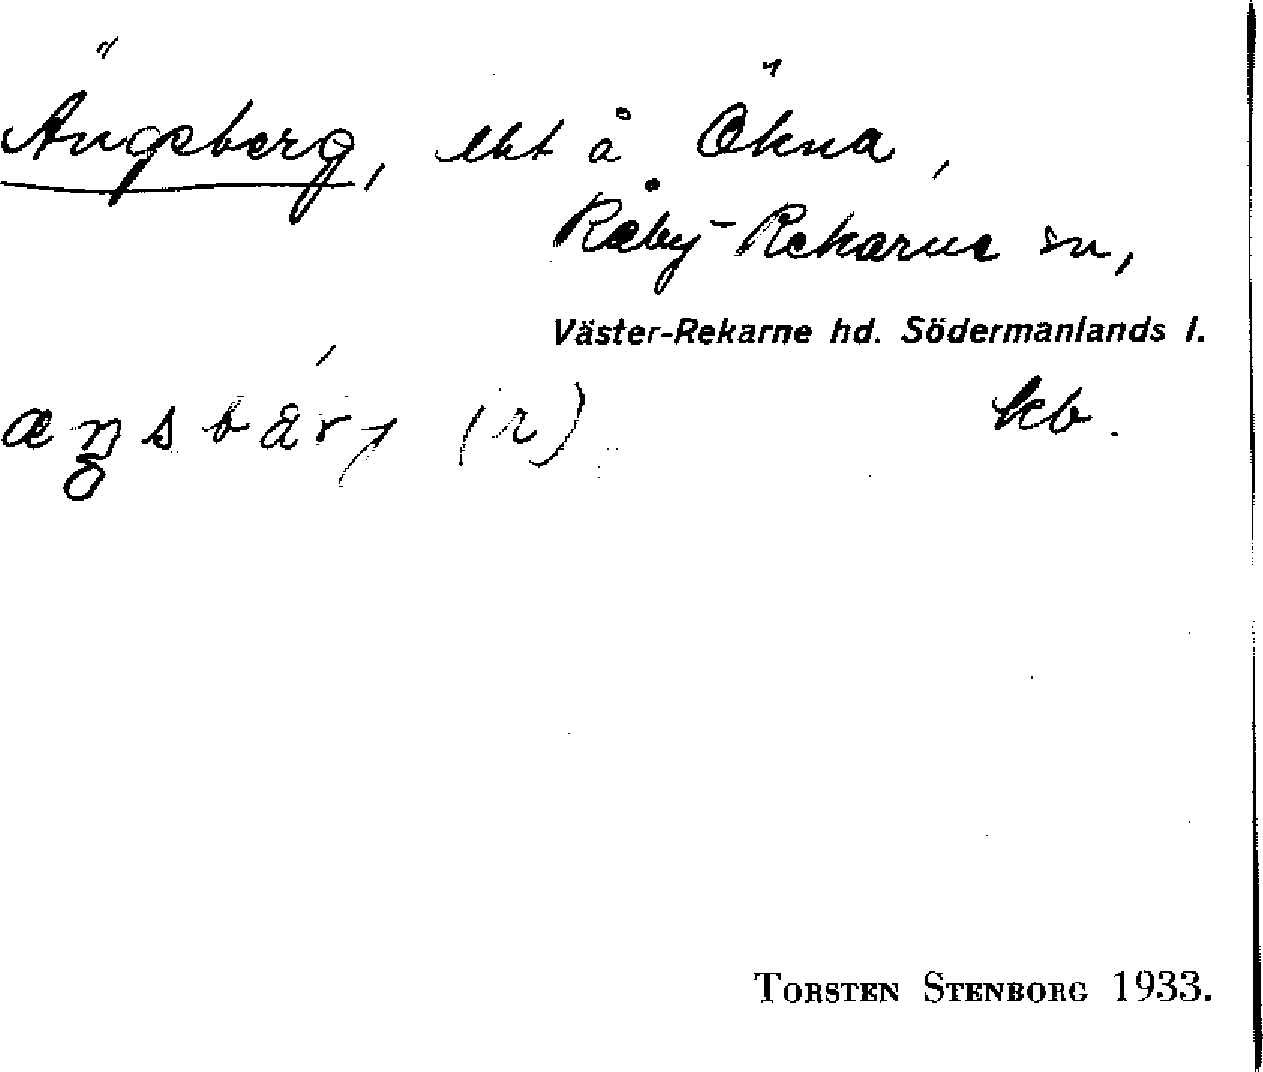 Ängsberg, lht å Ökna,
Råby-Rekarne sn,
Väster-Rekarne hd. Södermanlands l.
kb.
(r)
TORSTEN STENBORG 1933.